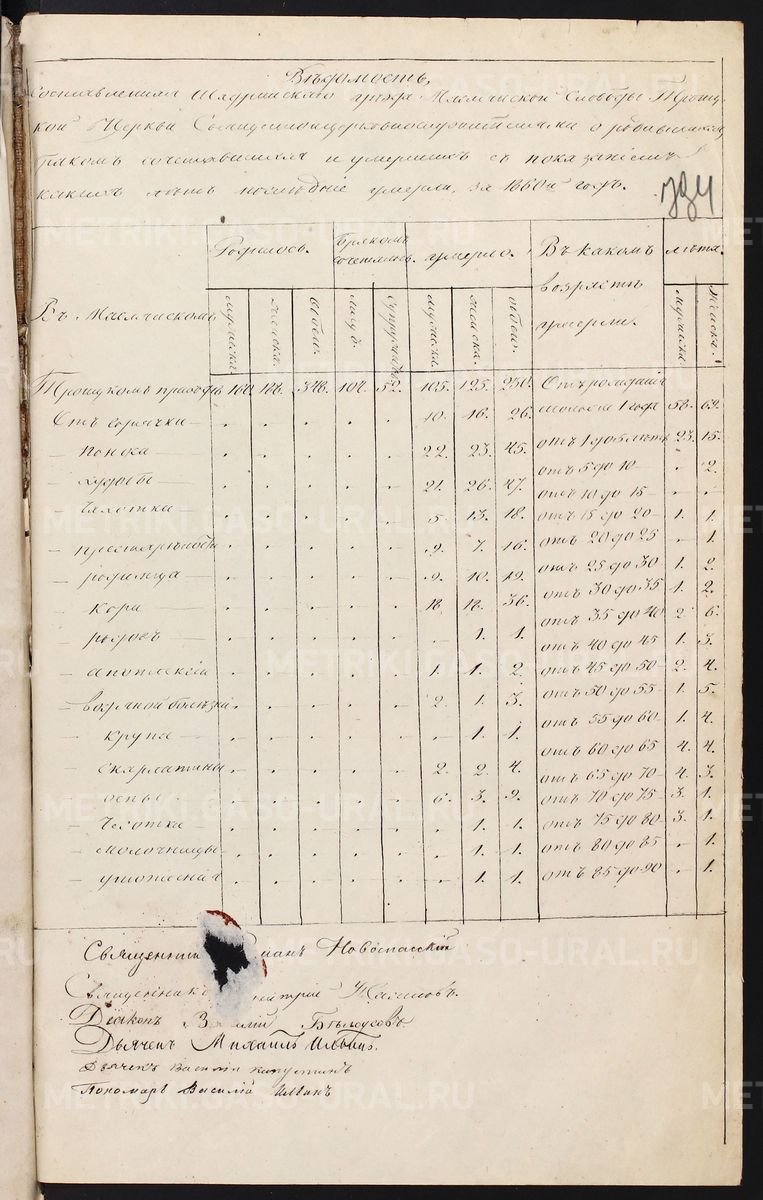 Вѣдомость,
составленная Шадринскаго уѣзда Маслянской Слободы Троиц-
кой Церкви Священноцерковнослужителями о родившихся,
бракомъ сочетавшихся и умершихъ съ показаніемъ
какихъ лѣтъ послѣдніе умерли, за 1860й годъ.
Родилось. Бракомъ сочетались. умерло. Въ какомъ возрастѣ умерли. лѣта.
Въ Маслянскомъ мужска. женска. обоего. мужска. женска. обоего. мужска. женска.
Троицкомъ приходѣ 348. 104. 52. 105. 125. 230. Отъ рожденія
Отъ горячки — . . . . . 10. 16. 26. до 1 года 58. 69.
— поноса — . . . . . 22. 23. 45. отъ 1 до 5 лѣтъ 23. 15.
отъ 5 до 10 — „ 2.
— худобы — . . . . . 21. 26. 47. отъ 10 до 15 — „ „
— чахотки — . . . . . 5. 13. 18. отъ 15 до 20 — 1. 1.
— престарѣлости . . . . . 9. 7. 16. отъ 20 до 25 „ 1.
— родимца — . . . . . 9. 10. 19. отъ 25 до 30 1. 2.
— кори — . . . . . 18. 18. 36. отъ 30 до 35 1. 2.
отъ 35 до 40 2. 6.
— родовъ — . . . . . . 1. 1. отъ 40 до 45 1. 3.
— апоплексіи . . . . . 1. 1. 2. отъ 45 до 50 — 2. 4.
— водяной болѣзни . . . . . 2. 1. 3. отъ 50 до 55 — 1. 5.
— крупа — . . . . . . 1. 1. отъ 55 до 60 — 1. 4.
отъ 60 до 65 4. 4.
— скарлатины . . . . . 2. 2. 4. отъ 65 до 70 — 4. 3.
— оспы — . . . . . 6. 3. 9. отъ 70 до 75 — 3. 1.
— чесотки — . . . . . . 1. 1. отъ 75 до 80 — 3. 1.
— молочницы — . . . . . . 1. 1. отъ 80 до 85 „ 1.
. . . . . . 1. 1. отъ 85 до 90 „ 1.
Священник Новоспасскій
Священник
Діаконъ В лій Бѣлоусовъ
Дьячекъ Михаилъ Ильинъ.
Дьячекъ Василій Капустинъ
Пономарь Василій Ильинъ
METRIKI.GASO-URAL.RU